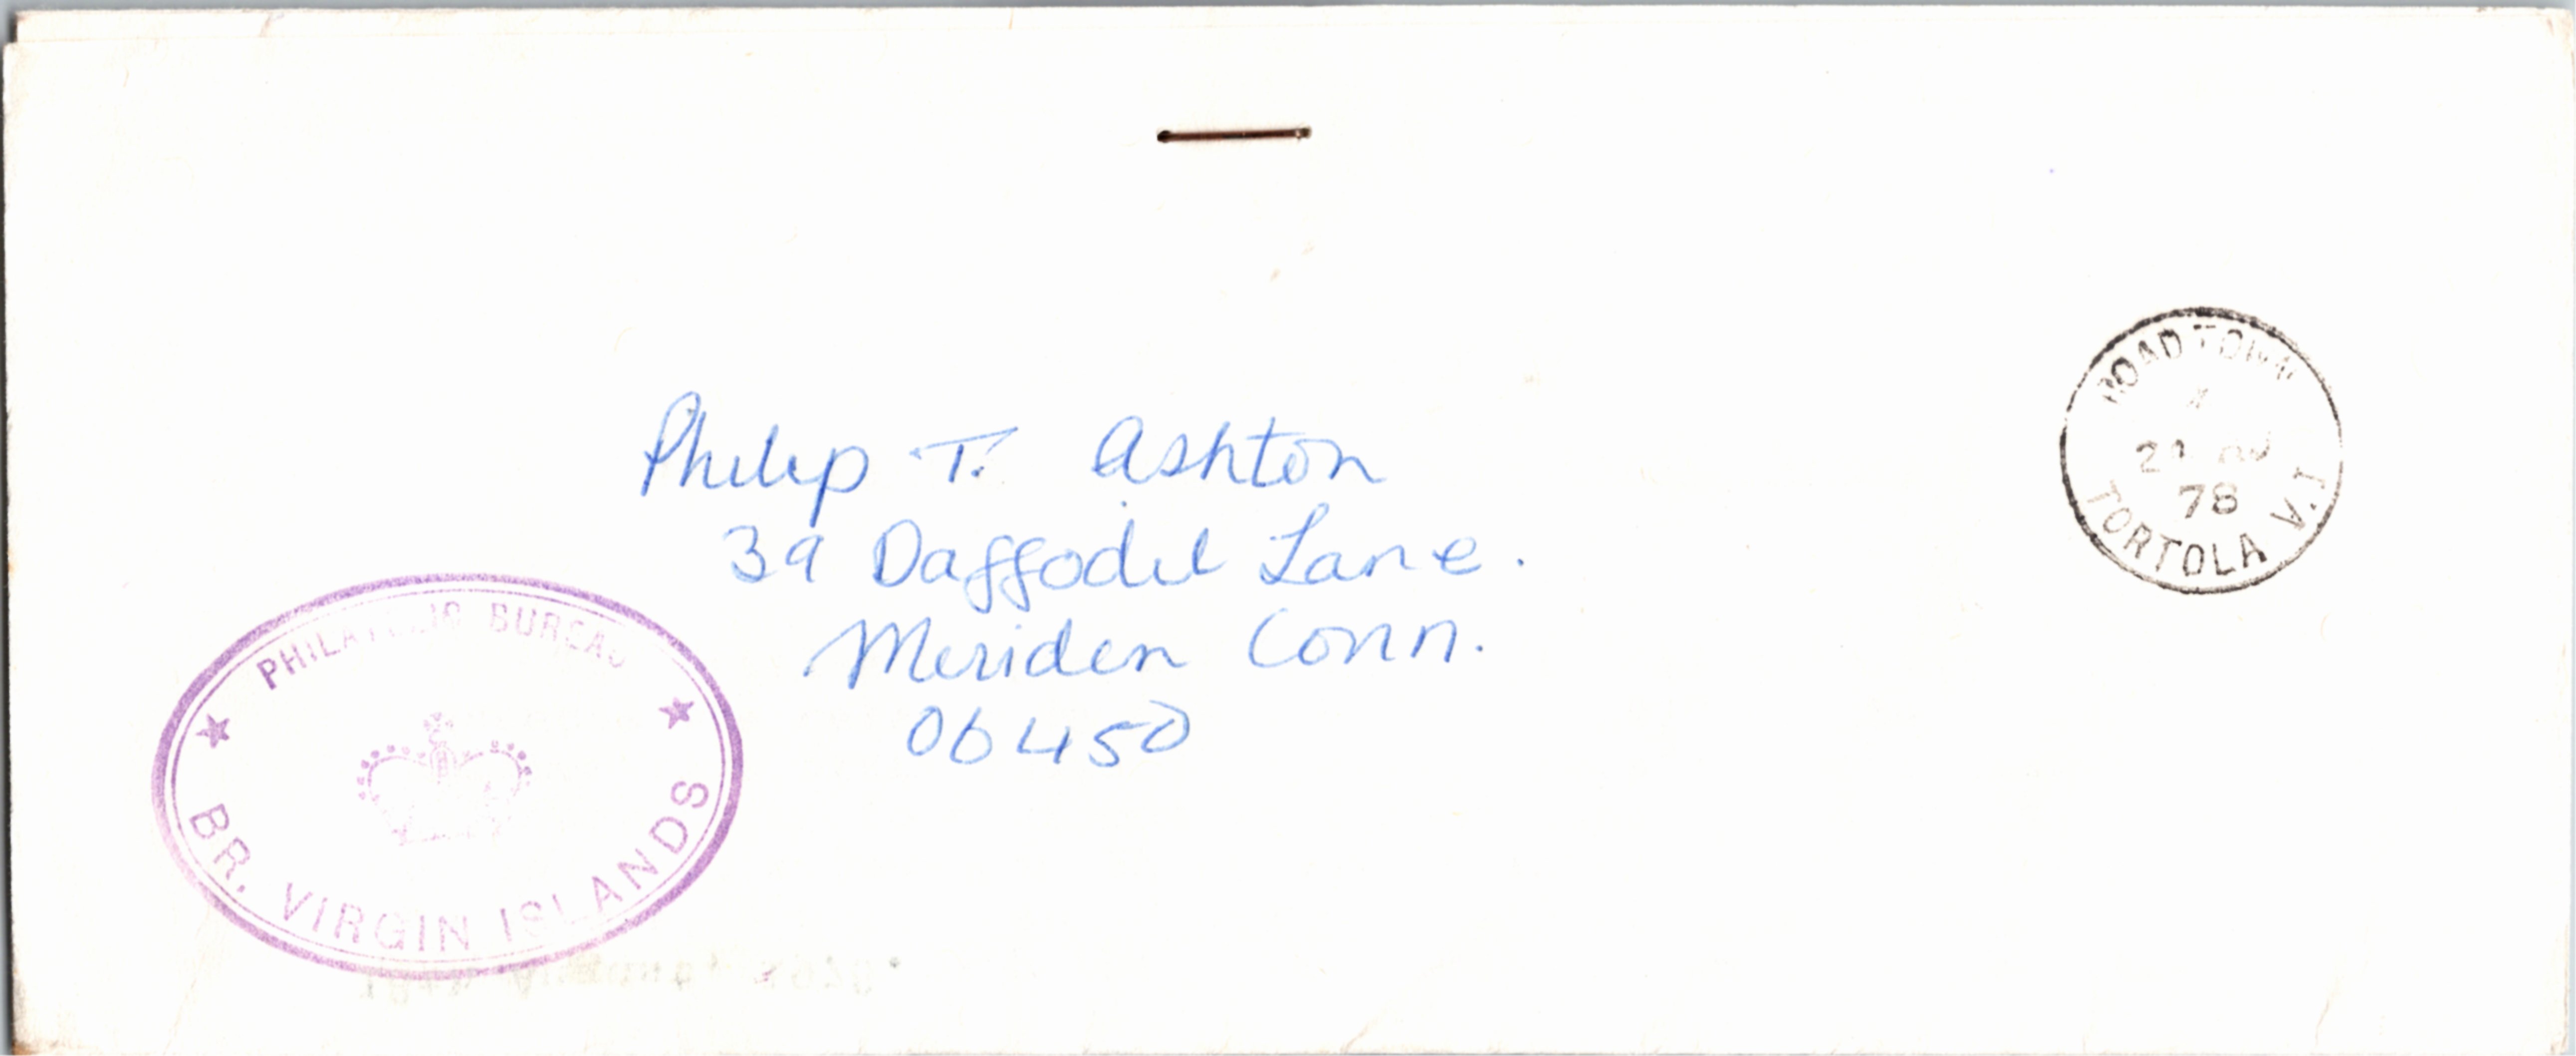 Philip T. Ashton
39 Daffodil Lane.
Meriden Conn.
06450
ROAD TOWN
78
TORTOLA V.I
PHILATELIC BUREAU
BR. VIRGIN ISLANDS